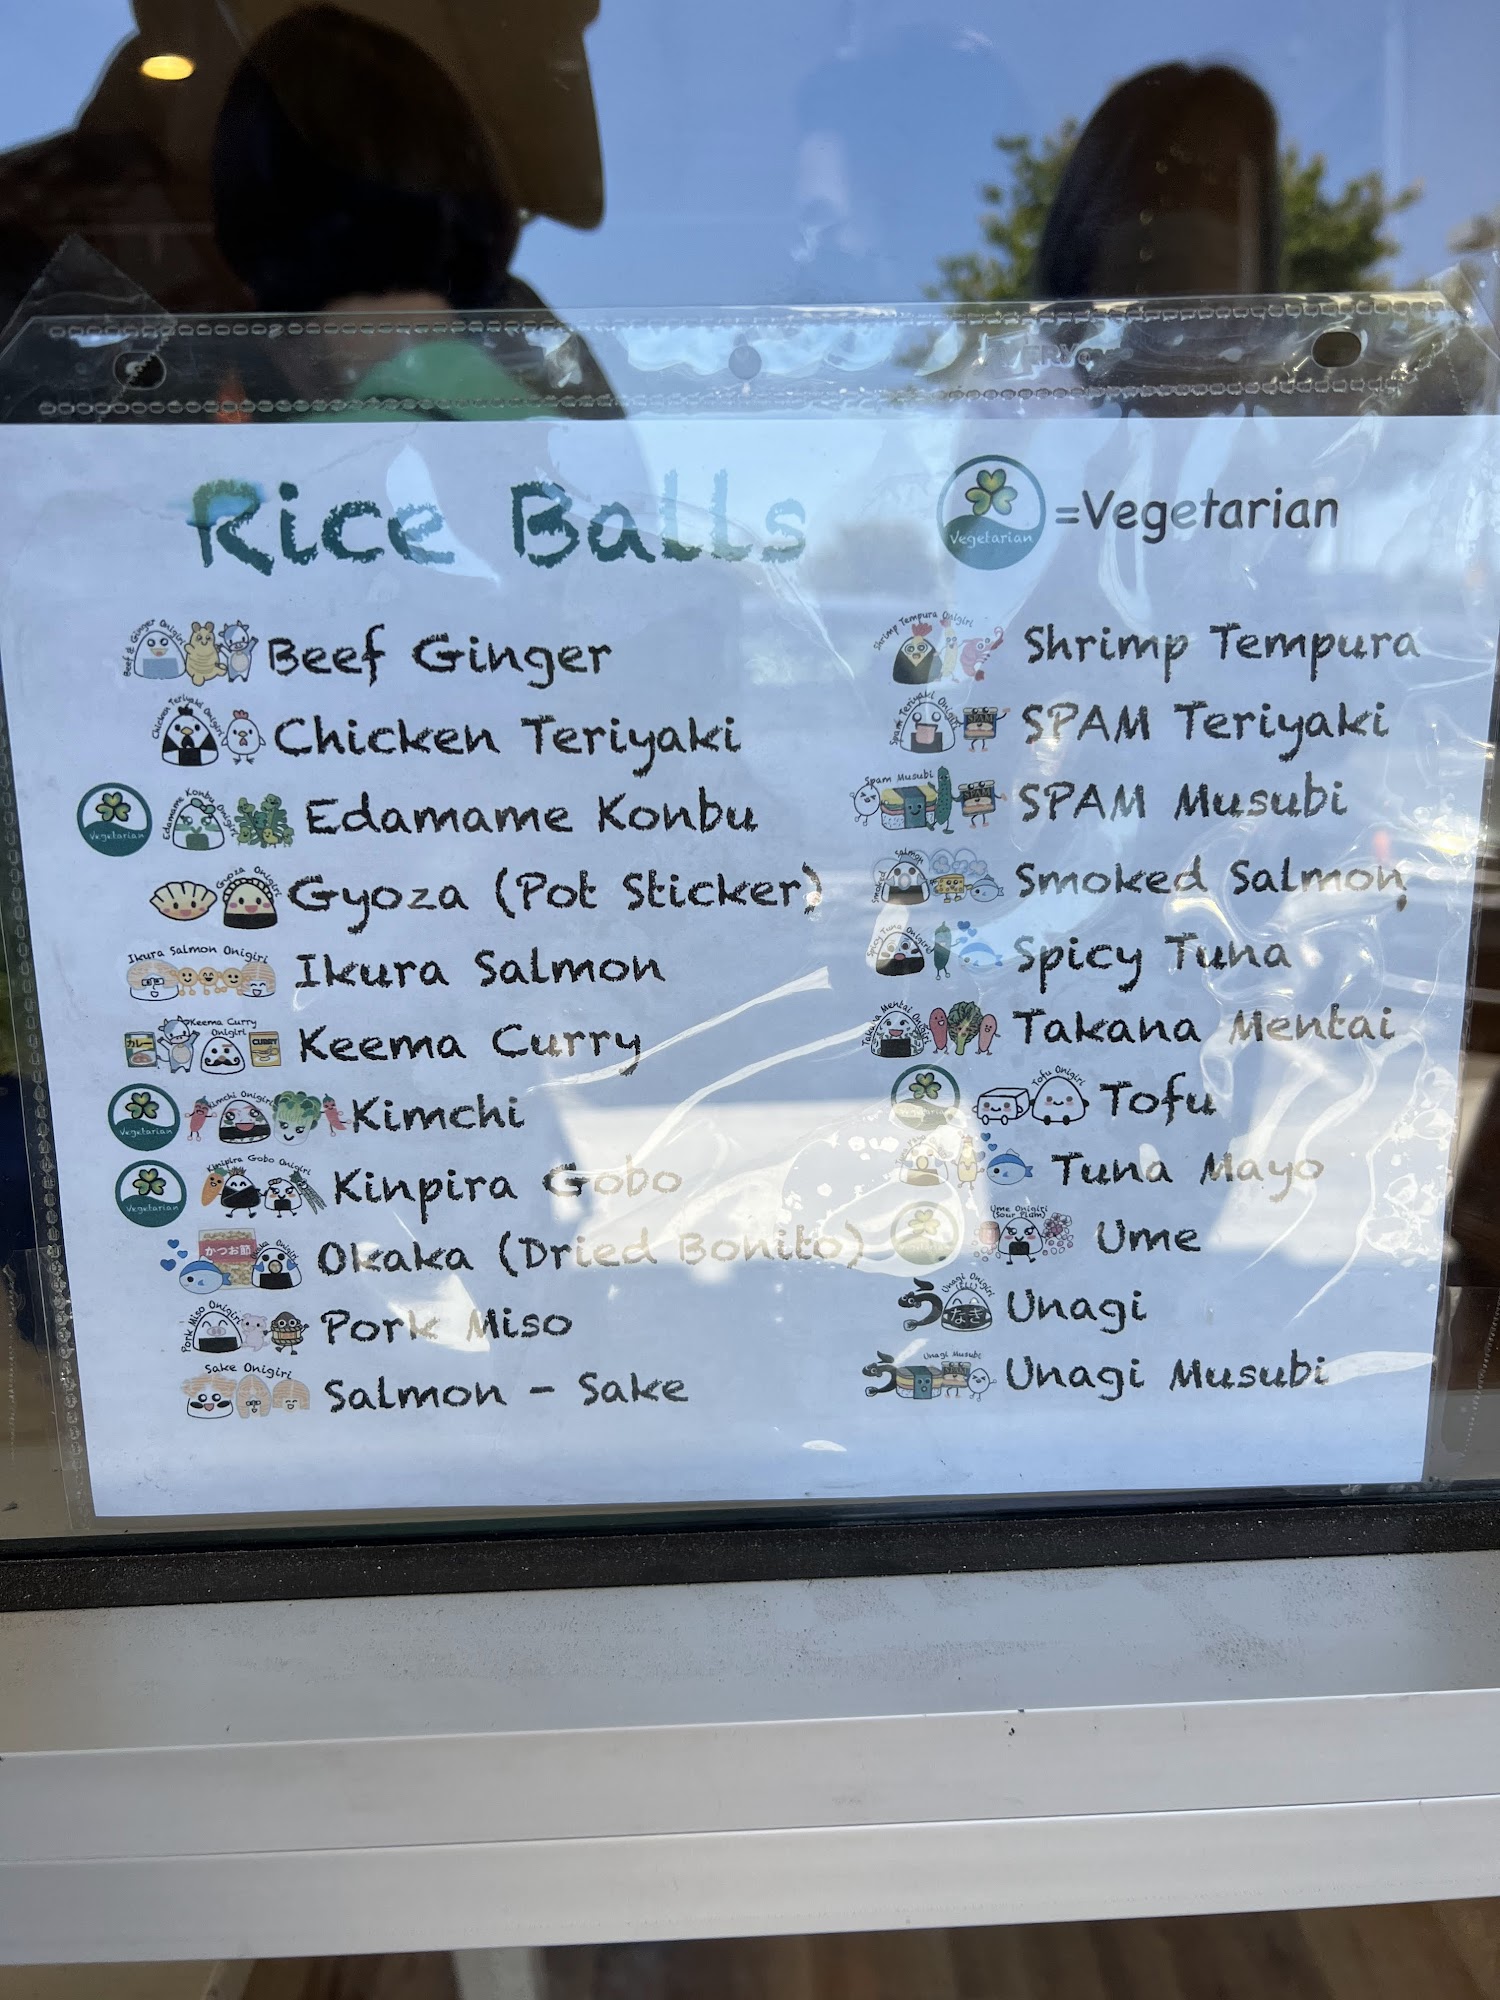 Rice Balls
Vegetarian
=Vegetarian
Beef & Ginger Onigiri
Beef Ginger
Chicken Teriyaki Onigiri
Chicken Teriyaki
Vegetarian
Edamame Konbu Onigiri
Edamame Konbu
Gyoza Onigiri
Gyoza (Pot Sticker)
Ikura Salmon Onigiri
Ikura Salmon
カレー
Keema Curry
Onigiri
CURRY
Keema Curry
Vegetarian
Kimchi Onigiri
Kimchi
Vegetarian
Kinpira Gobo Onigiri
Kinpira Gobo
かつお節
Okaka Onigiri
Okaka (Dried Bonito)
Pork Miso Onigiri
Pork Miso
Sake Onigiri
Salmon - Sake
Shrimp Tempura Onigiri
Shrimp Tempura
Spam Teriyaki Onigiri
SPAM
SPAM Teriyaki
Spam Musubi
SPAM
SPAM Musubi
Smoked Salmon
Smoked Salmon
Spicy Tuna Onigiri
Spicy Tuna
Takana Mentai Onigiri
Takana Mentai
Vegetarian
Tofu Onigiri
Tofu
Tuna Mayo
Ume Onigiri
(Sour Plum)
Ume
Unagi Onigiri
う
なぎ
Unagi
う
Unagi Musubi
Unagi Musubi